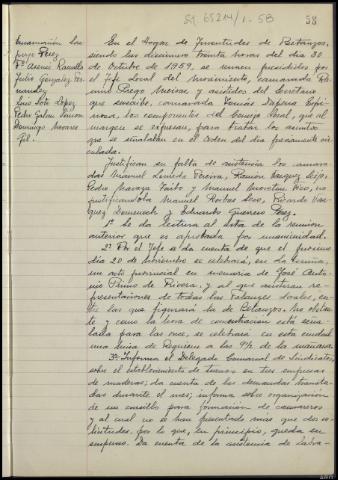 58
Encarnación Lo-
pez Pérez
Fº Asenei Ramilla
Julio Gonzalez Fer-
nandez
Luis Sota López
Pedro Galan
Domingo Navares
Gil.
En el Hogar de Juventudes de Betanzos,
siendo las diecinueve treinta horas del dia 30
de Octubre de 1959, se reunen presididos por
el Jefe Local del Movimiento, camarada
Prego Meirase y asistidos del Secretario
que suscribe, camarada Tomás Dapena Espi-
nosa, los componentes del Consejo local, que al
margen se expresan, para tratar los asuntos
que se señalaban en el orden del dia previamente cir-
culado.
Justifican su falta de asistencia los camara-
das Manuel Lomedo Pereira, Ramón Vazquez Seijo,
Pedro Naraya Faibo y Manuel Moretón Rico, no
justificandola Manuel Rocha Deus, Ricardo Vaz-
quez Domenech y Eduardo Guerrero Perez.
1º Se da lectura al acta de la reunion
anterior que es aprobada por unanimidad.
2º Por el Jefe se da cuenta de que el proximo
dia 20 de noviembre se celebrará, en La Coruña,
un acto provincial en memoria de José Anto-
nio Primo de Rivera, y al que asistiran re-
presentaciones de todas las Falanges locales, en-
tre las que figurará la de Betanzos. No obstan-
te y como la hora de concentracion está seña-
lada para las once, se celebrará en esta ciudad
una misa de Requiem a las 9½ de la mañana.
3º Informa el Delegado Comarcal de Sindicatos,
sobre el establecimiento de turnos en tres empresas
de maderas; da cuenta de las demandas tramita-
das durante el mes; informa sobre organización
de un cursillo para formacion de camareros
y al cual no se han presentado mas que dos so-
licitudes, por lo que, en principio, queda en
suspenso. Da cuenta de la asistencia de labra-